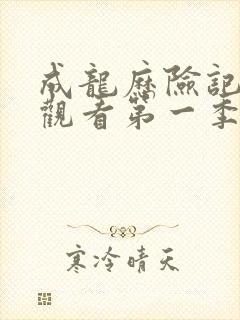 成龍歷險記
觀看第一季
寒冷晴天